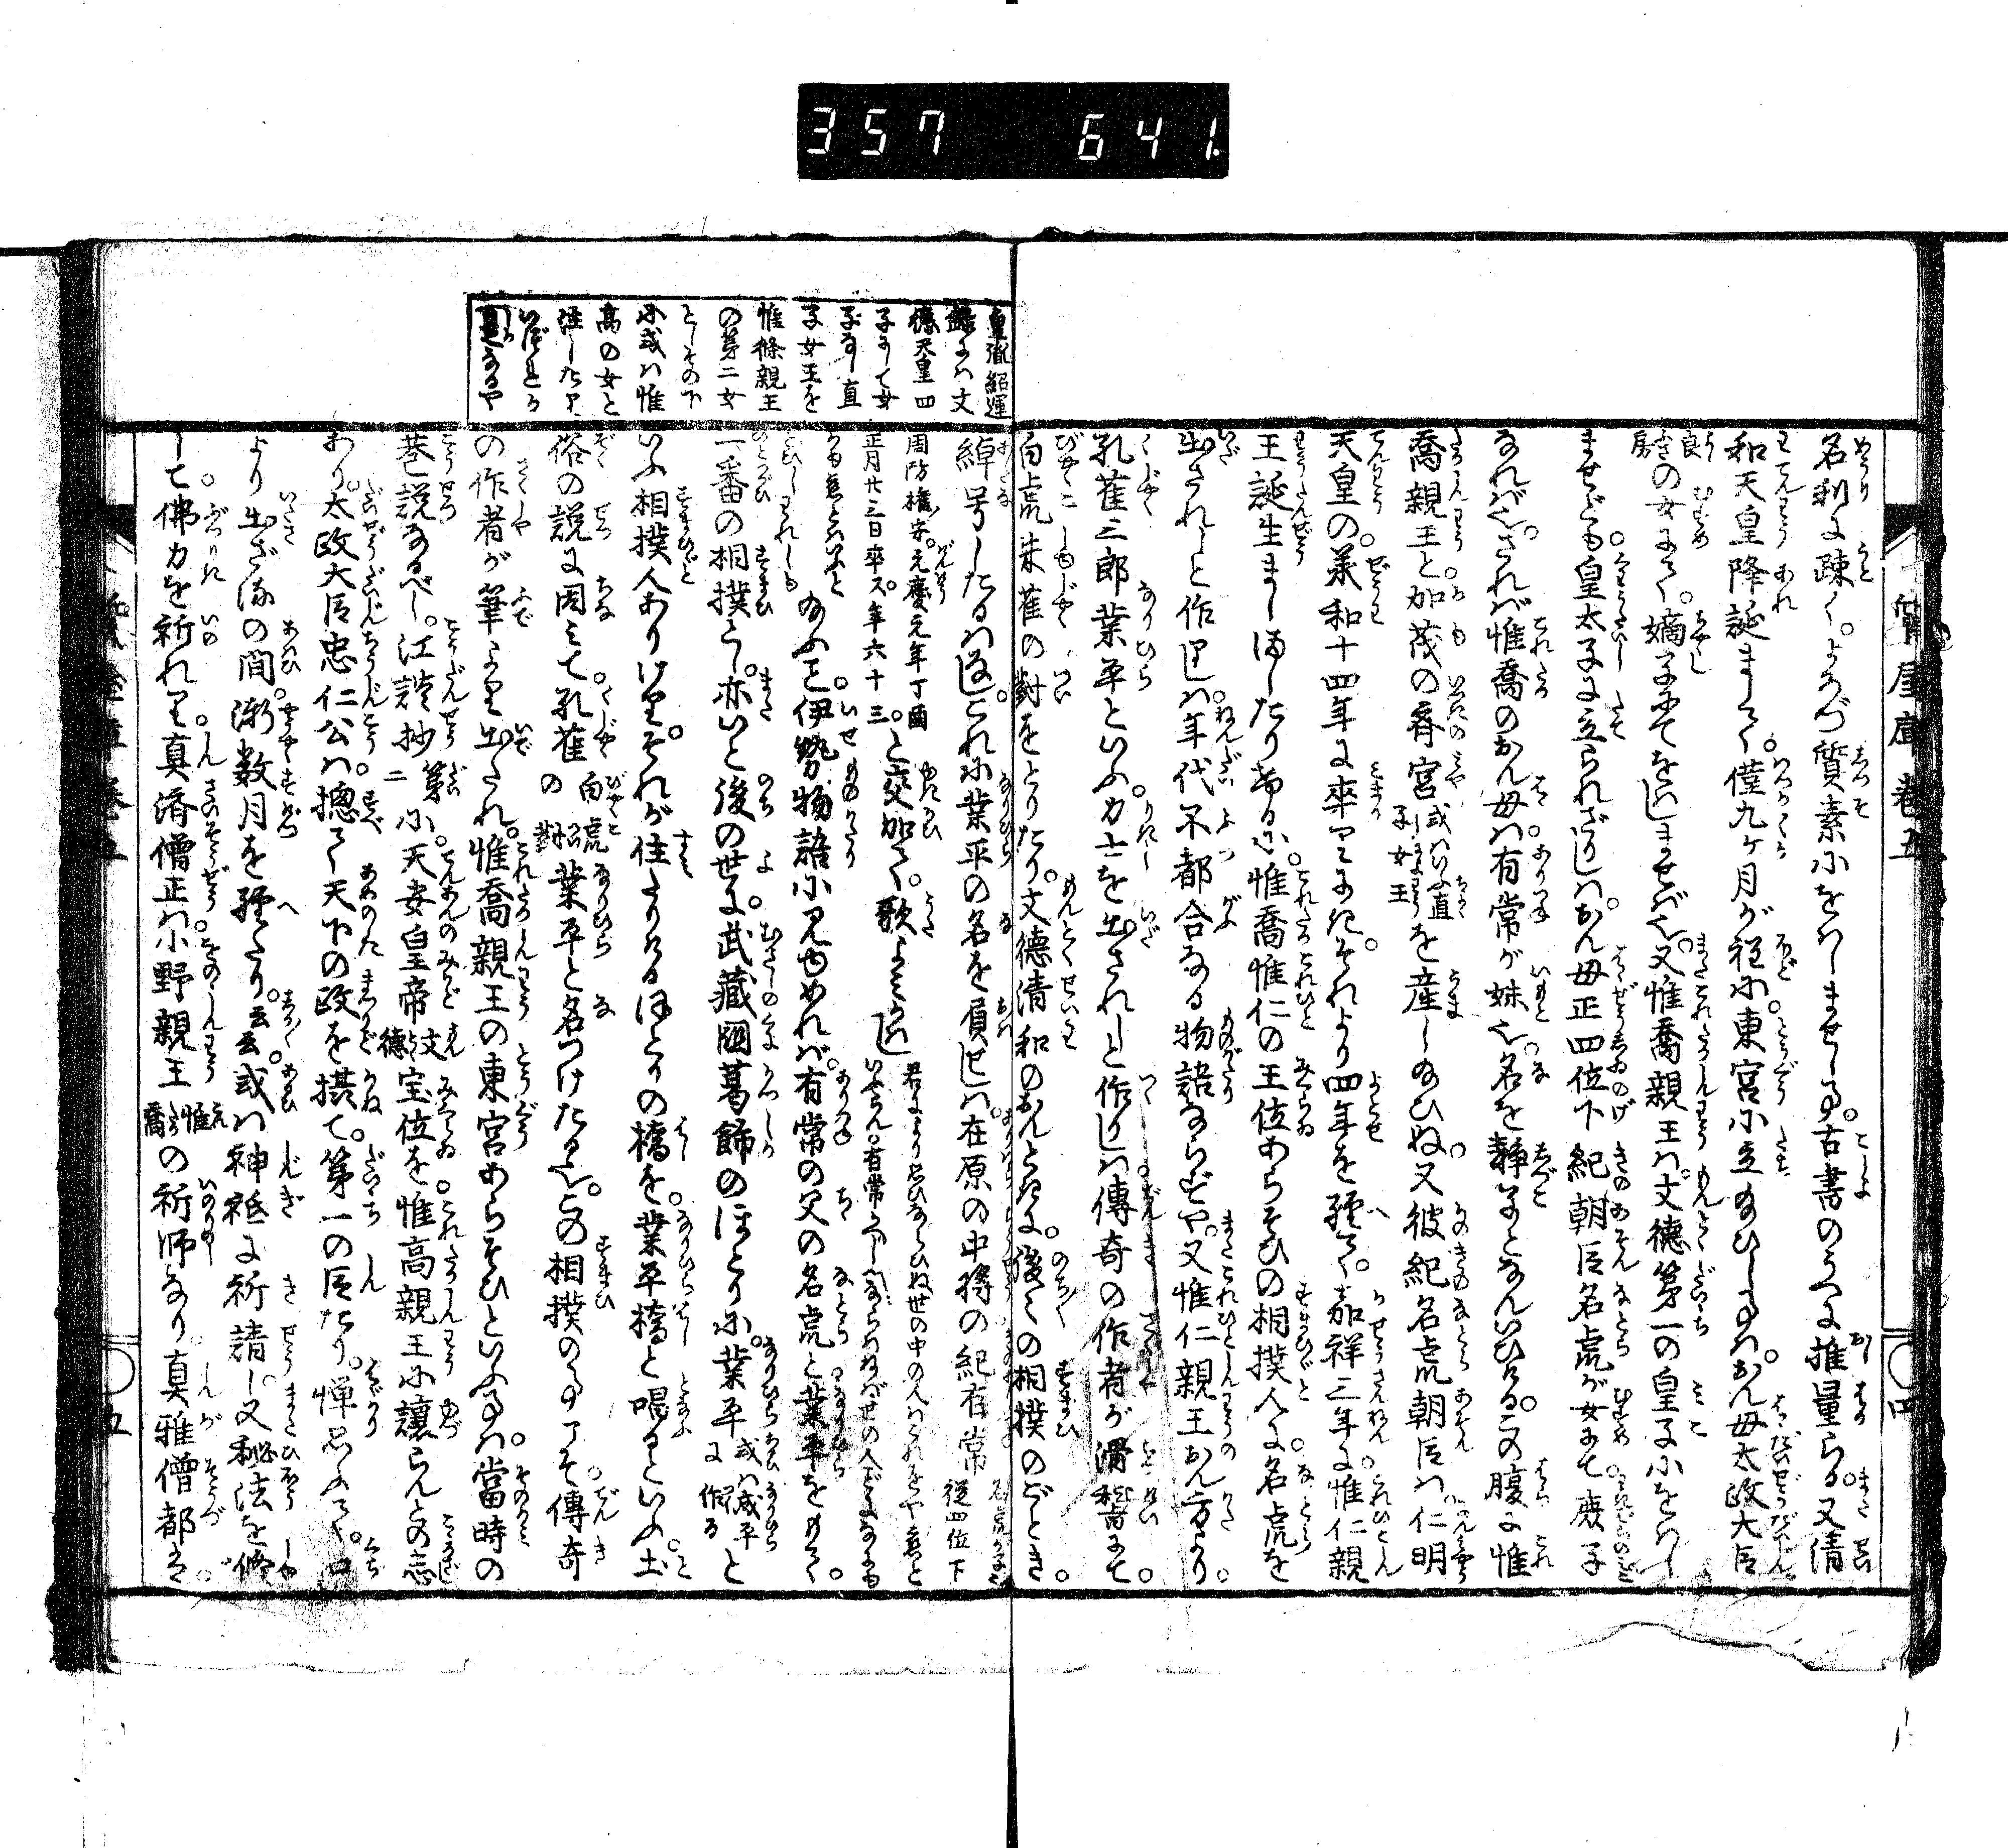 357 641.
質屋庫巻五
名利に疎く。よろづ質素にをはしませし事。古書のうへに推量らる。又清
和天皇降誕まして。僅九ケ月が程に。東宮に立給ひし事は。おん母太政大臣
良房の女にて。嫡子にてをはしませば也。又惟喬親王は。文徳第一の皇子にをはし
ませども。皇太子に立られざりしは。おん母正四位下紀朝臣名虎が女にて。庶子
なれば也。されば惟喬のおん母は。有常が妹也。名を静子となんいひける。この腹に惟
喬親王と。加茂の斎宮或はいふ直子女王を産し給ひぬ。又彼紀名虎朝臣は。仁明
天皇の。承和十四年に卒りにき。それより四年を歴て。嘉祥三年に。惟仁親
王誕生ましましたりけるに。惟喬惟仁の王位あらそひの相撲人に。名虎を
出されしと作りしは。年代不都合なる物語ならずや。又惟仁親王おん方より。
孔雀三郎業平といふ力士を出されしと作りしは。傳奇の作者が滑稽にて。
白虎朱雀の對をとりたり。文徳清和のおんときに。後々の相撲のごとき。
四
皇胤紹運
録には文
徳天皇四
子にして女
子なし直
子女王を
惟條親王
の第二女
としその下
に或は惟
高の女と
注したり
いづれか
是なるや
綽号したるはなし。これに業平の名を負せしは。在原の中将の紀有常名虎が子也從四位下
周防権ノ守。元慶元年丁酉正月廿三日卒ス。年六十三。と交加て。歌よみかはし
君により思ひならひぬ世の中の人はこれをや恋といふらん。有常かへしならはねば世の人ごとになにをかも恋とはいふととひしわれしも
給ふこと。伊勢物語に見ゆめれば。有常の父の名虎と業平をもて。
一番の相撲とし。亦いと後の世に。武藏國葛飾のほとりに。業平或は成平に作ると
いふ相撲人ありけり。それが住たりけるほとりの橋を。業平橋と唱るといふ。土
俗の説に因みて。孔雀白虎の對名業平と名つけたる也。この相撲の事アそ傳奇
の作者が筆より出たれ。惟喬親王の東宮あらそひといふ事は。當時の
巷説なるべし。江談抄第二に。天安皇帝文徳宝位を。惟高親王に讓らんとの志
あり。太政大臣忠仁公は。摠て天下の政を摂て。第一の臣たり。憚思ふて。口
より出ざるの間。漸数月を歴たり。云云。或は神祇に祈請し。又秘法を修
して。佛力を祈れり。真済僧正は。小野親王惟喬の祈師なり。真雅僧都は。
五